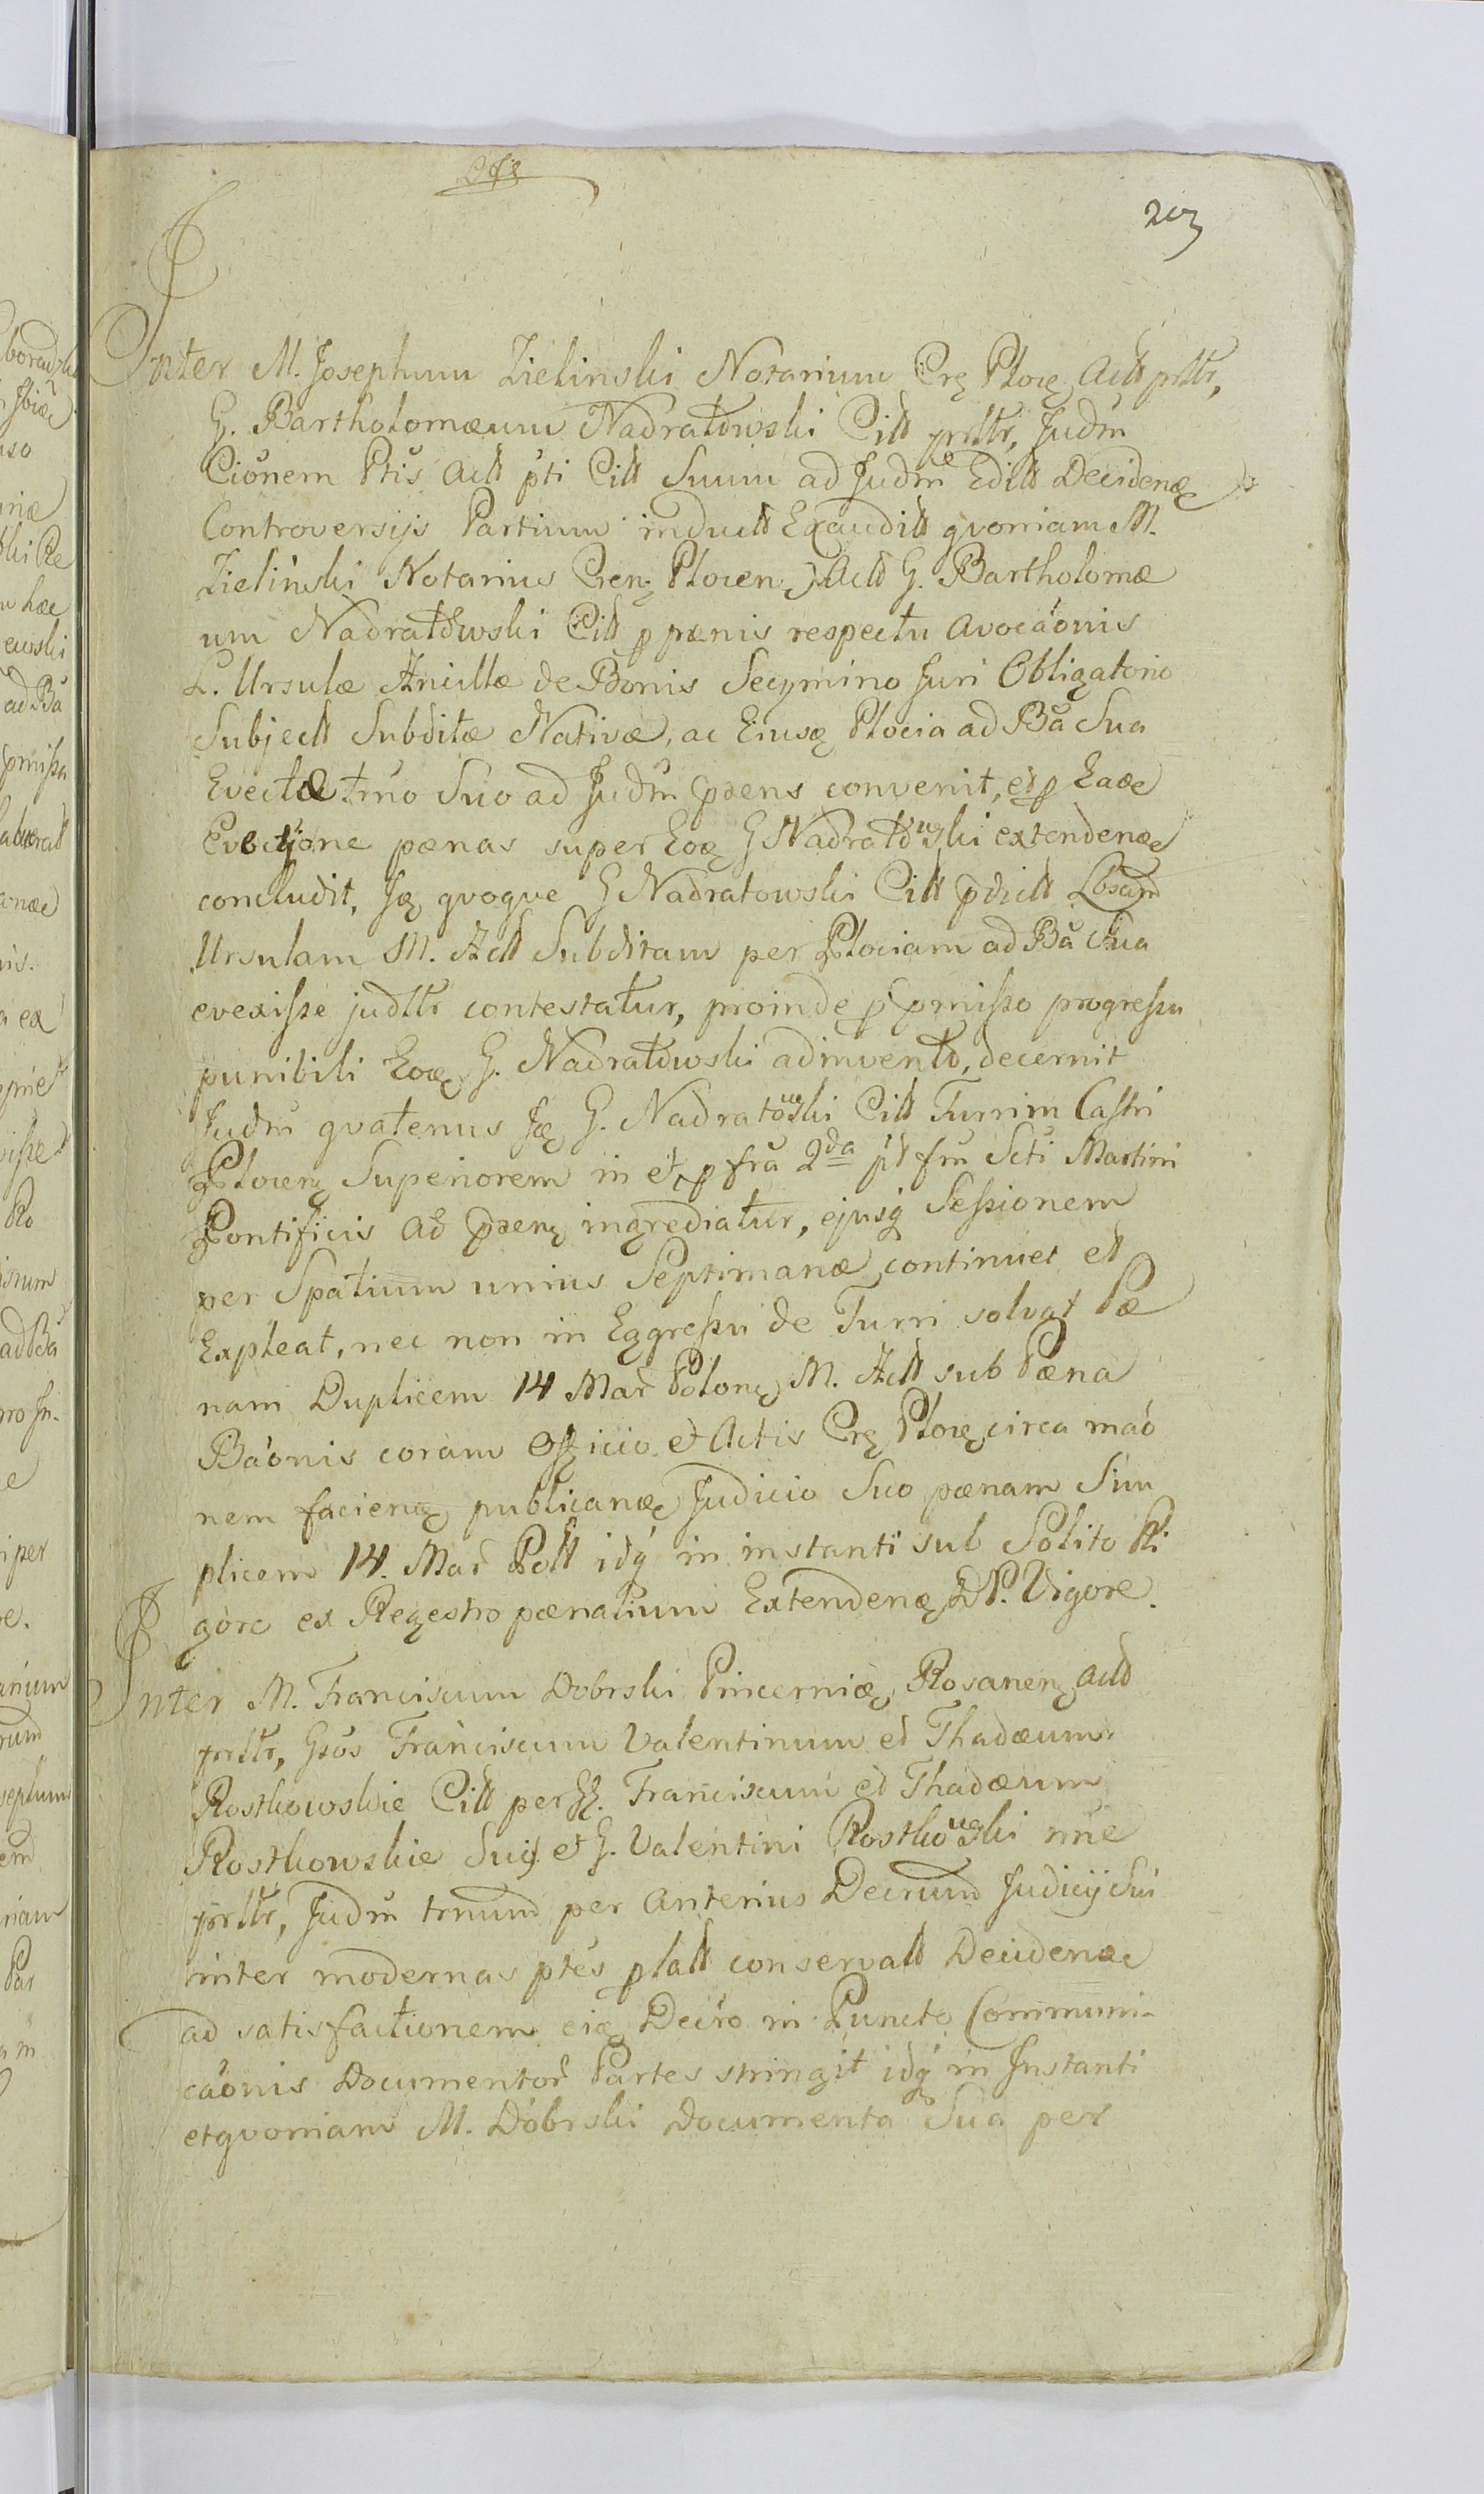 203
Inter M. Josephum Zielinski Notarium Crę Plocę Actt prłtr,
G. Bartholomæum Nadratowski Citt prłtr, Judm
Cionem Ptis Actt pti Citt Suum ad Judm Editt Decidenę
Controversijs Partium inductt Exauditt qvoniam M.
Zielinski Notarius Crenę Plocenę Actt G. Bartholomæ
um Nadratowski Citt p pænis respectu avocaonis
L. Ursulæ Ancillæ de Bonis Secymino Juri Obligatorio
Subjectt Subditæ Nativæ, ac Eiusę Plocia ad Ba Sua
Evectæ trno Suo ad Judm præns convenit, et p Eade
Evectione pænas super Eoę G Nadratowski extendenæ
concludit, Ję qvoqve G Nadratowski Citt pdictt Lbsam
Ursulam M. Actt Subditam per Plociam ad Ba Sua
evexisse judłtr contestatur, proinde p pmisso progressu
punibili Eoę G. Nadratowski adinvento, decernit
Judm qvatenus Ję G. Nadratowski Citt Turrim Castri
Plocenę Superiorem in et p fra 2da pt fm Scti Martini
Pontificis ad præns ingrediatur, ejusq Sessionem
per Spatium unius Septimanæ continuet et
Expleat, nec non in Eggressu de Turri solvat Pæ
nam Duplicem 14 Mar Polonę M. Actt sub Pæna
Baonis coram Officio et Actis Crę Plocę circa mao
nem facienę publicanę Judicio Suo pænam Sim
plicem 14. Mar Poll idq in instanti sub Solito Ri
gore ex Regestro pænalium Extendenę D. P. Vigore.
Inter M. Franciscum Dobrski Pincernię Rosanenę Actt
prłtr, Gsos Franciscum Valentinum et Thadæum
Rostkowskie Citt per GG. Franciscum et Thadæum
Rostkowskie Suis et G. Valentini Rostkowski nne
prłtr, Judm trnum per anterius Decrum Judicij Sui
inter modernas ptes platt conservatt Decidenæ
ad satisfactionem eię Decro in Puncto Communi-
caonis Documentor Partes stringit idq in Instanti
etqvoniam M. Dobrski Documenta Sua per